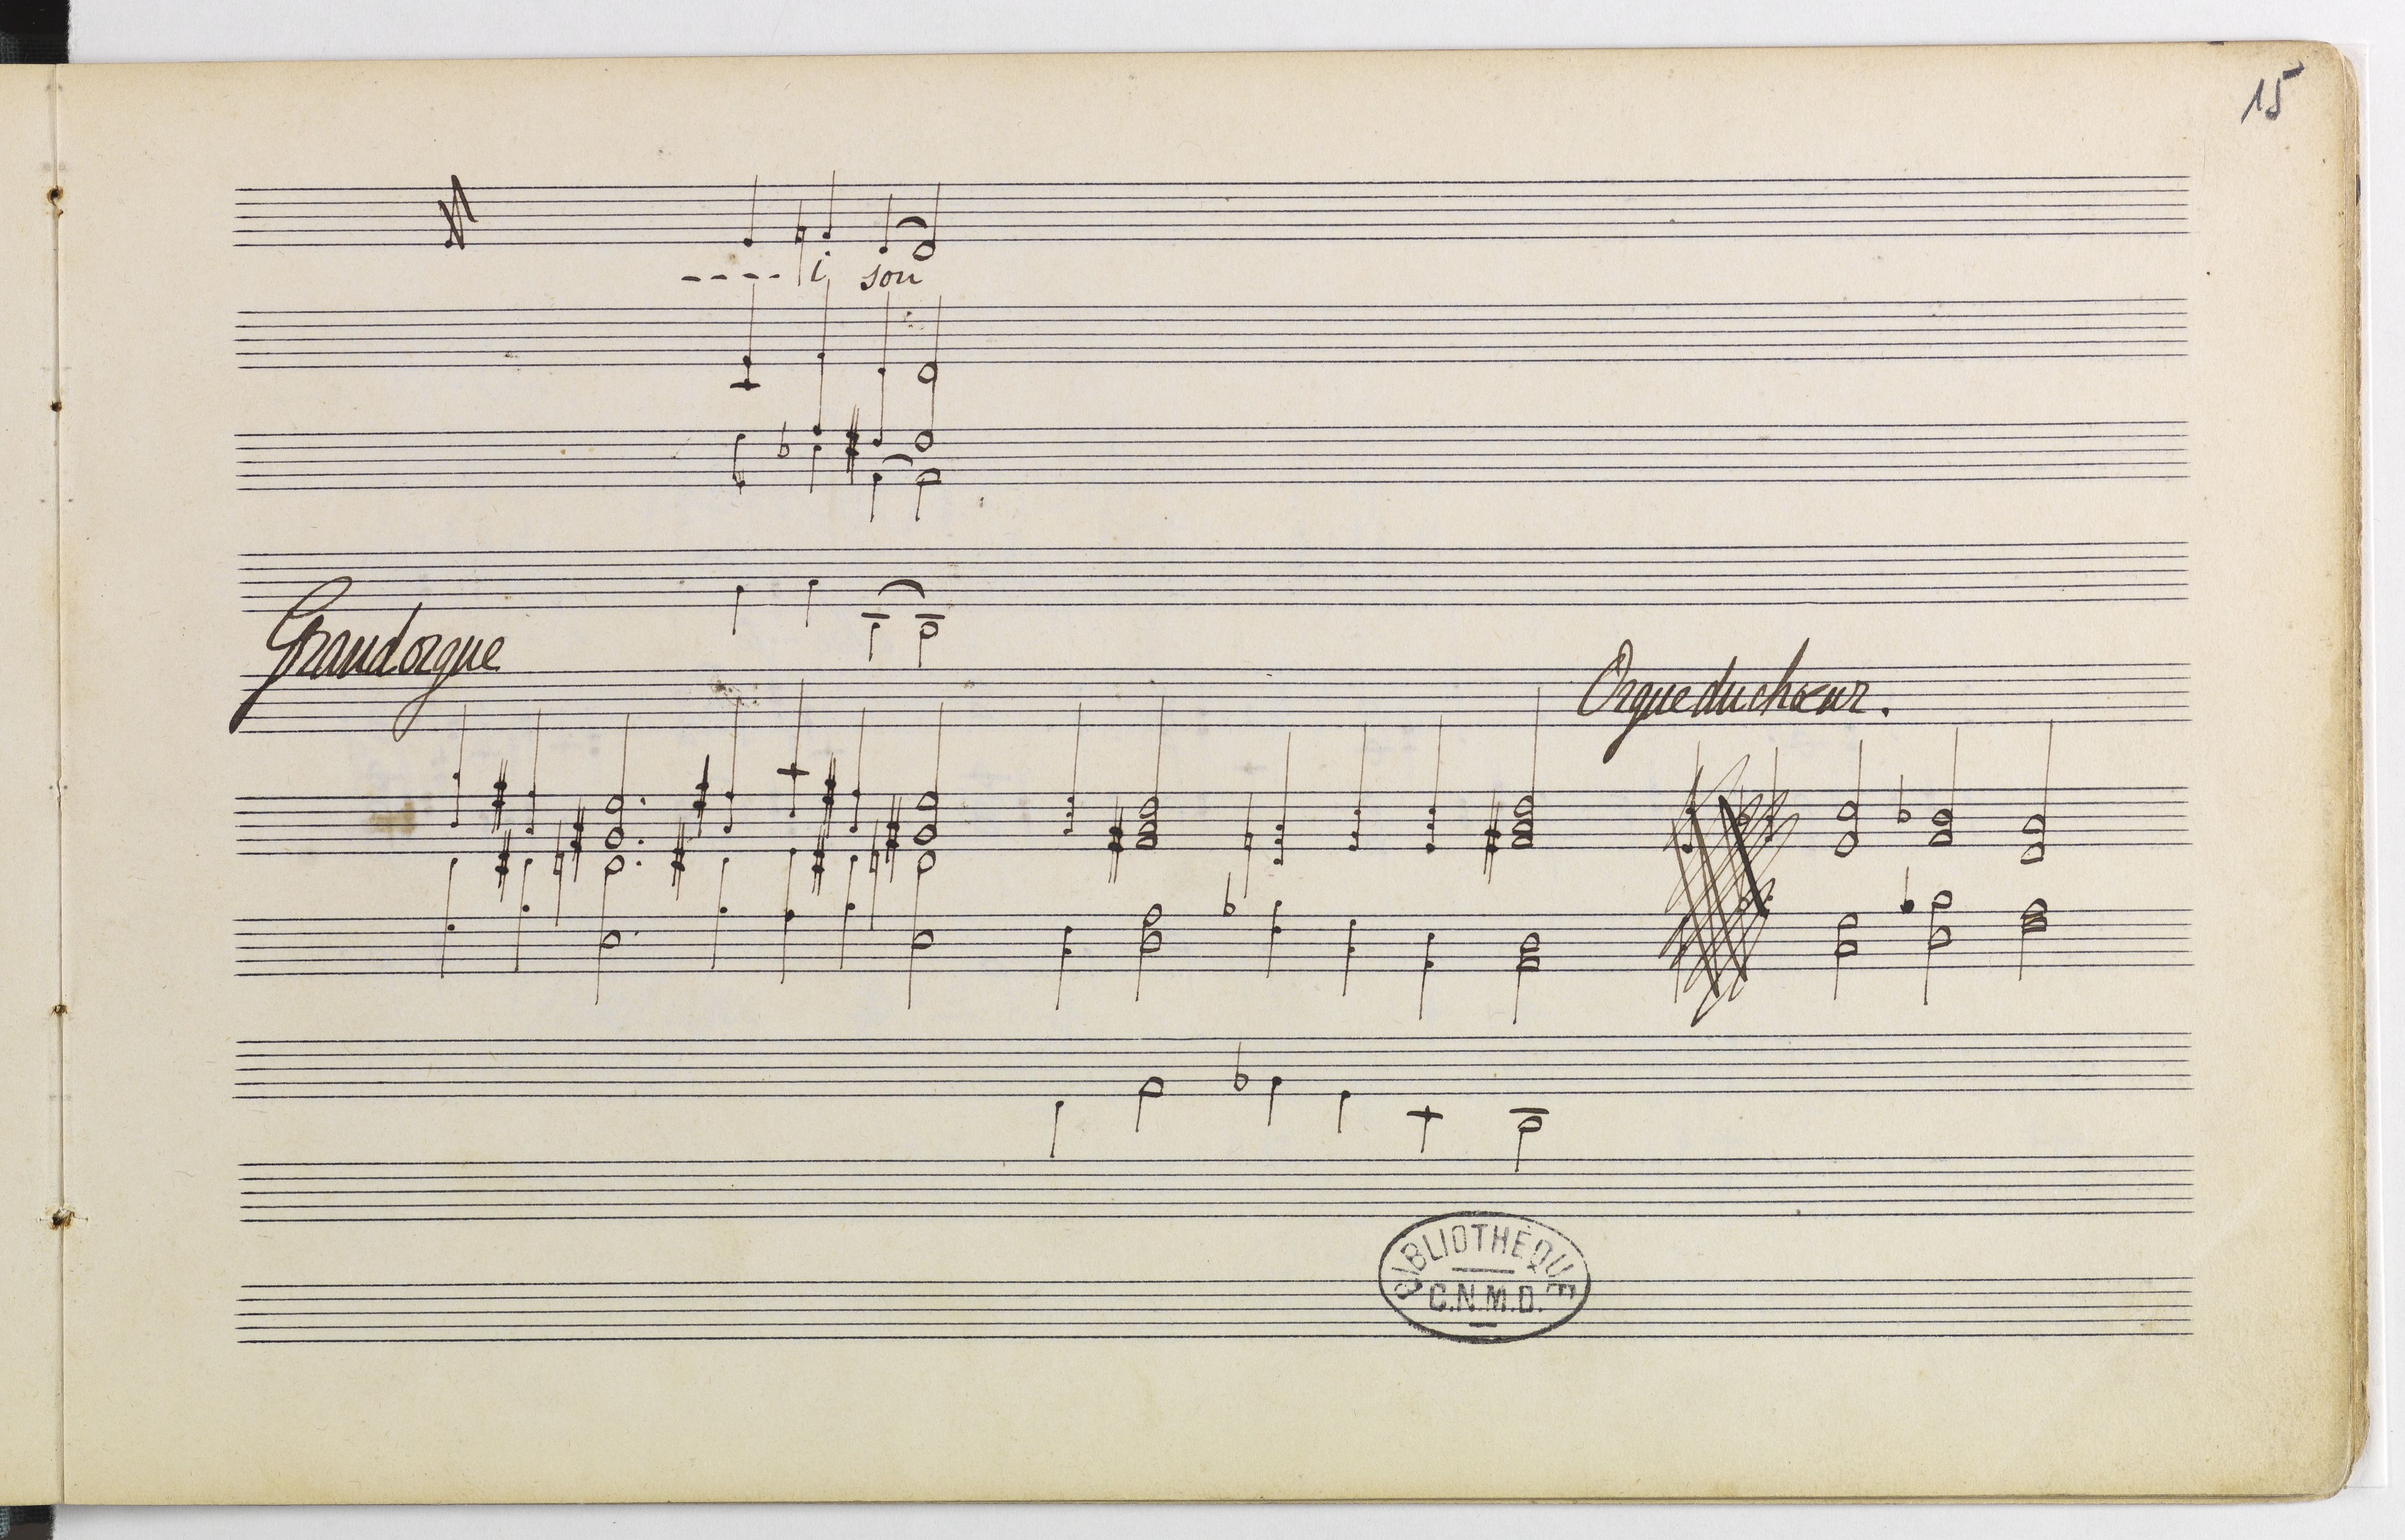 15
---- i son
Grand orgue
Orgue du chœur.
BIBLIOTHÈQUE
C.N.M.D.